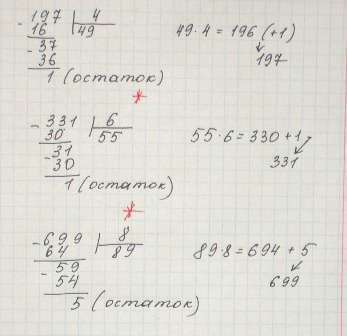 - 197 | 4
16 | 49 49·4 = 196 (+1)
- 37 197
36
1 (остаток)
*
- 331 | 6
30 | 55 55·6 = 330 + 1
- 31 331
30
1 (остаток)
*
- 699 | 8
64 | 89 89·8 = 694 + 5
- 59 699
54
5 (остаток)